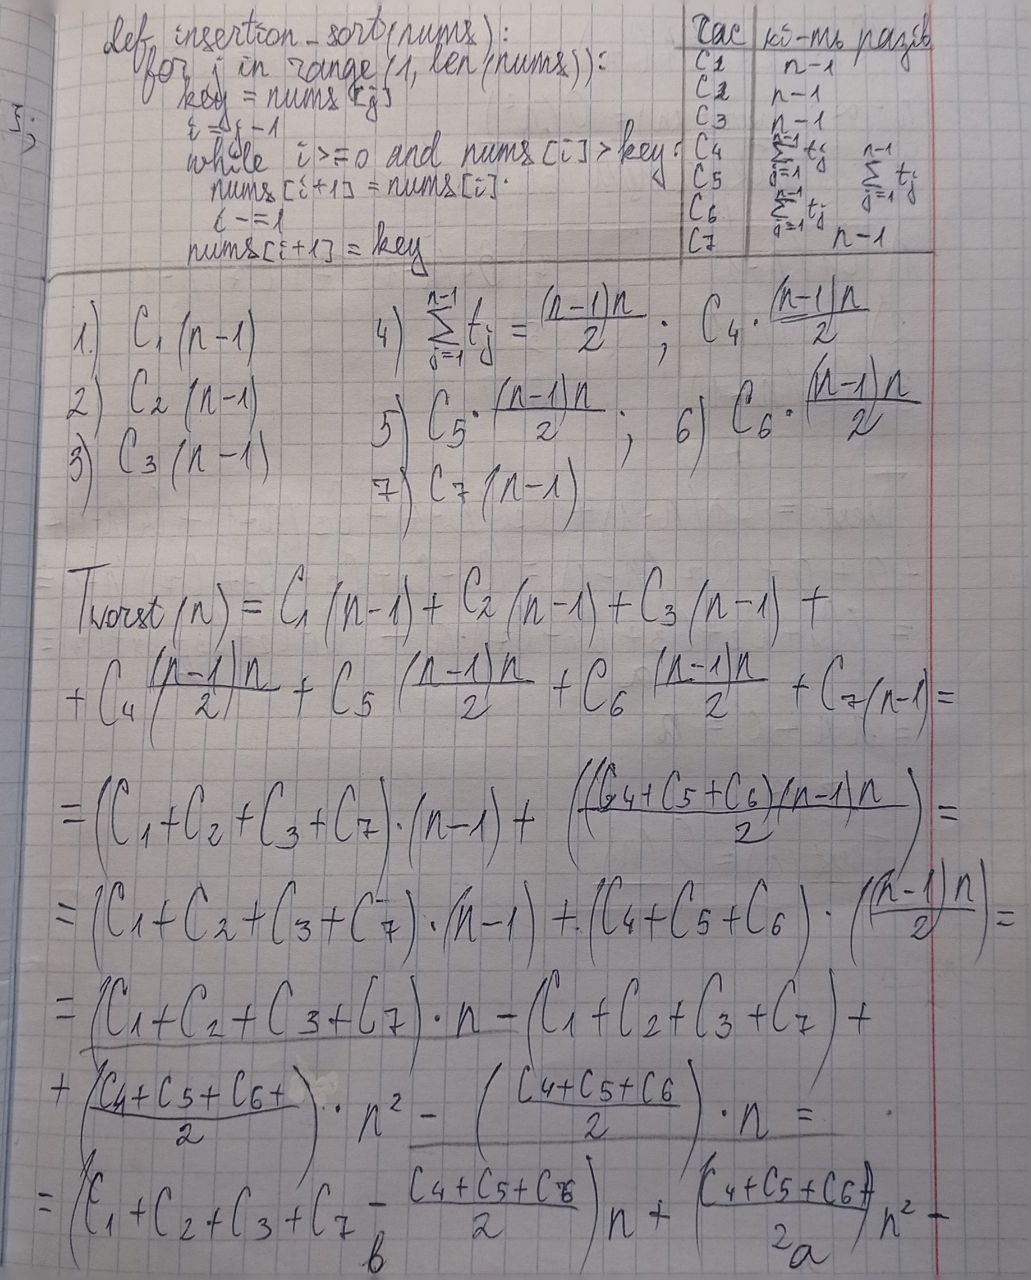 def insertion_sort(nums):
for j in range(1, len(nums)):
key = nums[j]
i = j-1
while i>=0 and nums[i]>key:
nums[i+1] = nums[i]
i -=1
nums[i+1] = key
Час кі-ть разів
C1 n-1
C2 n-1
C3 n-1
C4 \sum_{j=1}^{n-1} t_j
C5 \sum_{j=1}^{n-1} t_j
C6 \sum_{j=1}^{n-1} t_j
C7 n-1
1) C_1 (n-1)
2) C_2 (n-1)
3) C_3 (n-1)
4) \sum_{j=1}^{n-1} t_j = \frac{(n-1)n}{2} ; C_4 · \frac{(n-1)n}{2}
5) C_5 · \frac{(n-1)n}{2} ; 6) C_6 · \frac{(n-1)n}{2}
7) C_7 (n-1)
Tworst(n) = C_1 (n-1) + C_2 (n-1) + C_3 (n-1) +
+ C_4 \frac{(n-1)n}{2} + C_5 \frac{(n-1)n}{2} + C_6 \frac{(n-1)n}{2} + C_7 (n-1) =
= (C_1 + C_2 + C_3 + C_7) · (n-1) + (\frac{(C_4 + C_5 + C_6)(n-1)n}{2}) =
= (C_1 + C_2 + C_3 + C_7) · (n-1) + (C_4 + C_5 + C_6) · (\frac{(n-1)n}{2}) =
= (C_1 + C_2 + C_3 + C_7) · n - (C_1 + C_2 + C_3 + C_7) +
+ (\frac{C_4 + C_5 + C_6 +}{2}) · n^2 - (\frac{C_4 + C_5 + C_6}{2}) · n =
= (C_1 + C_2 + C_3 + C_7 - \frac{C_4 + C_5 + C_6}{2}) n + (\frac{C_4 + C_5 + C_6}{2}) n^2 -
b a